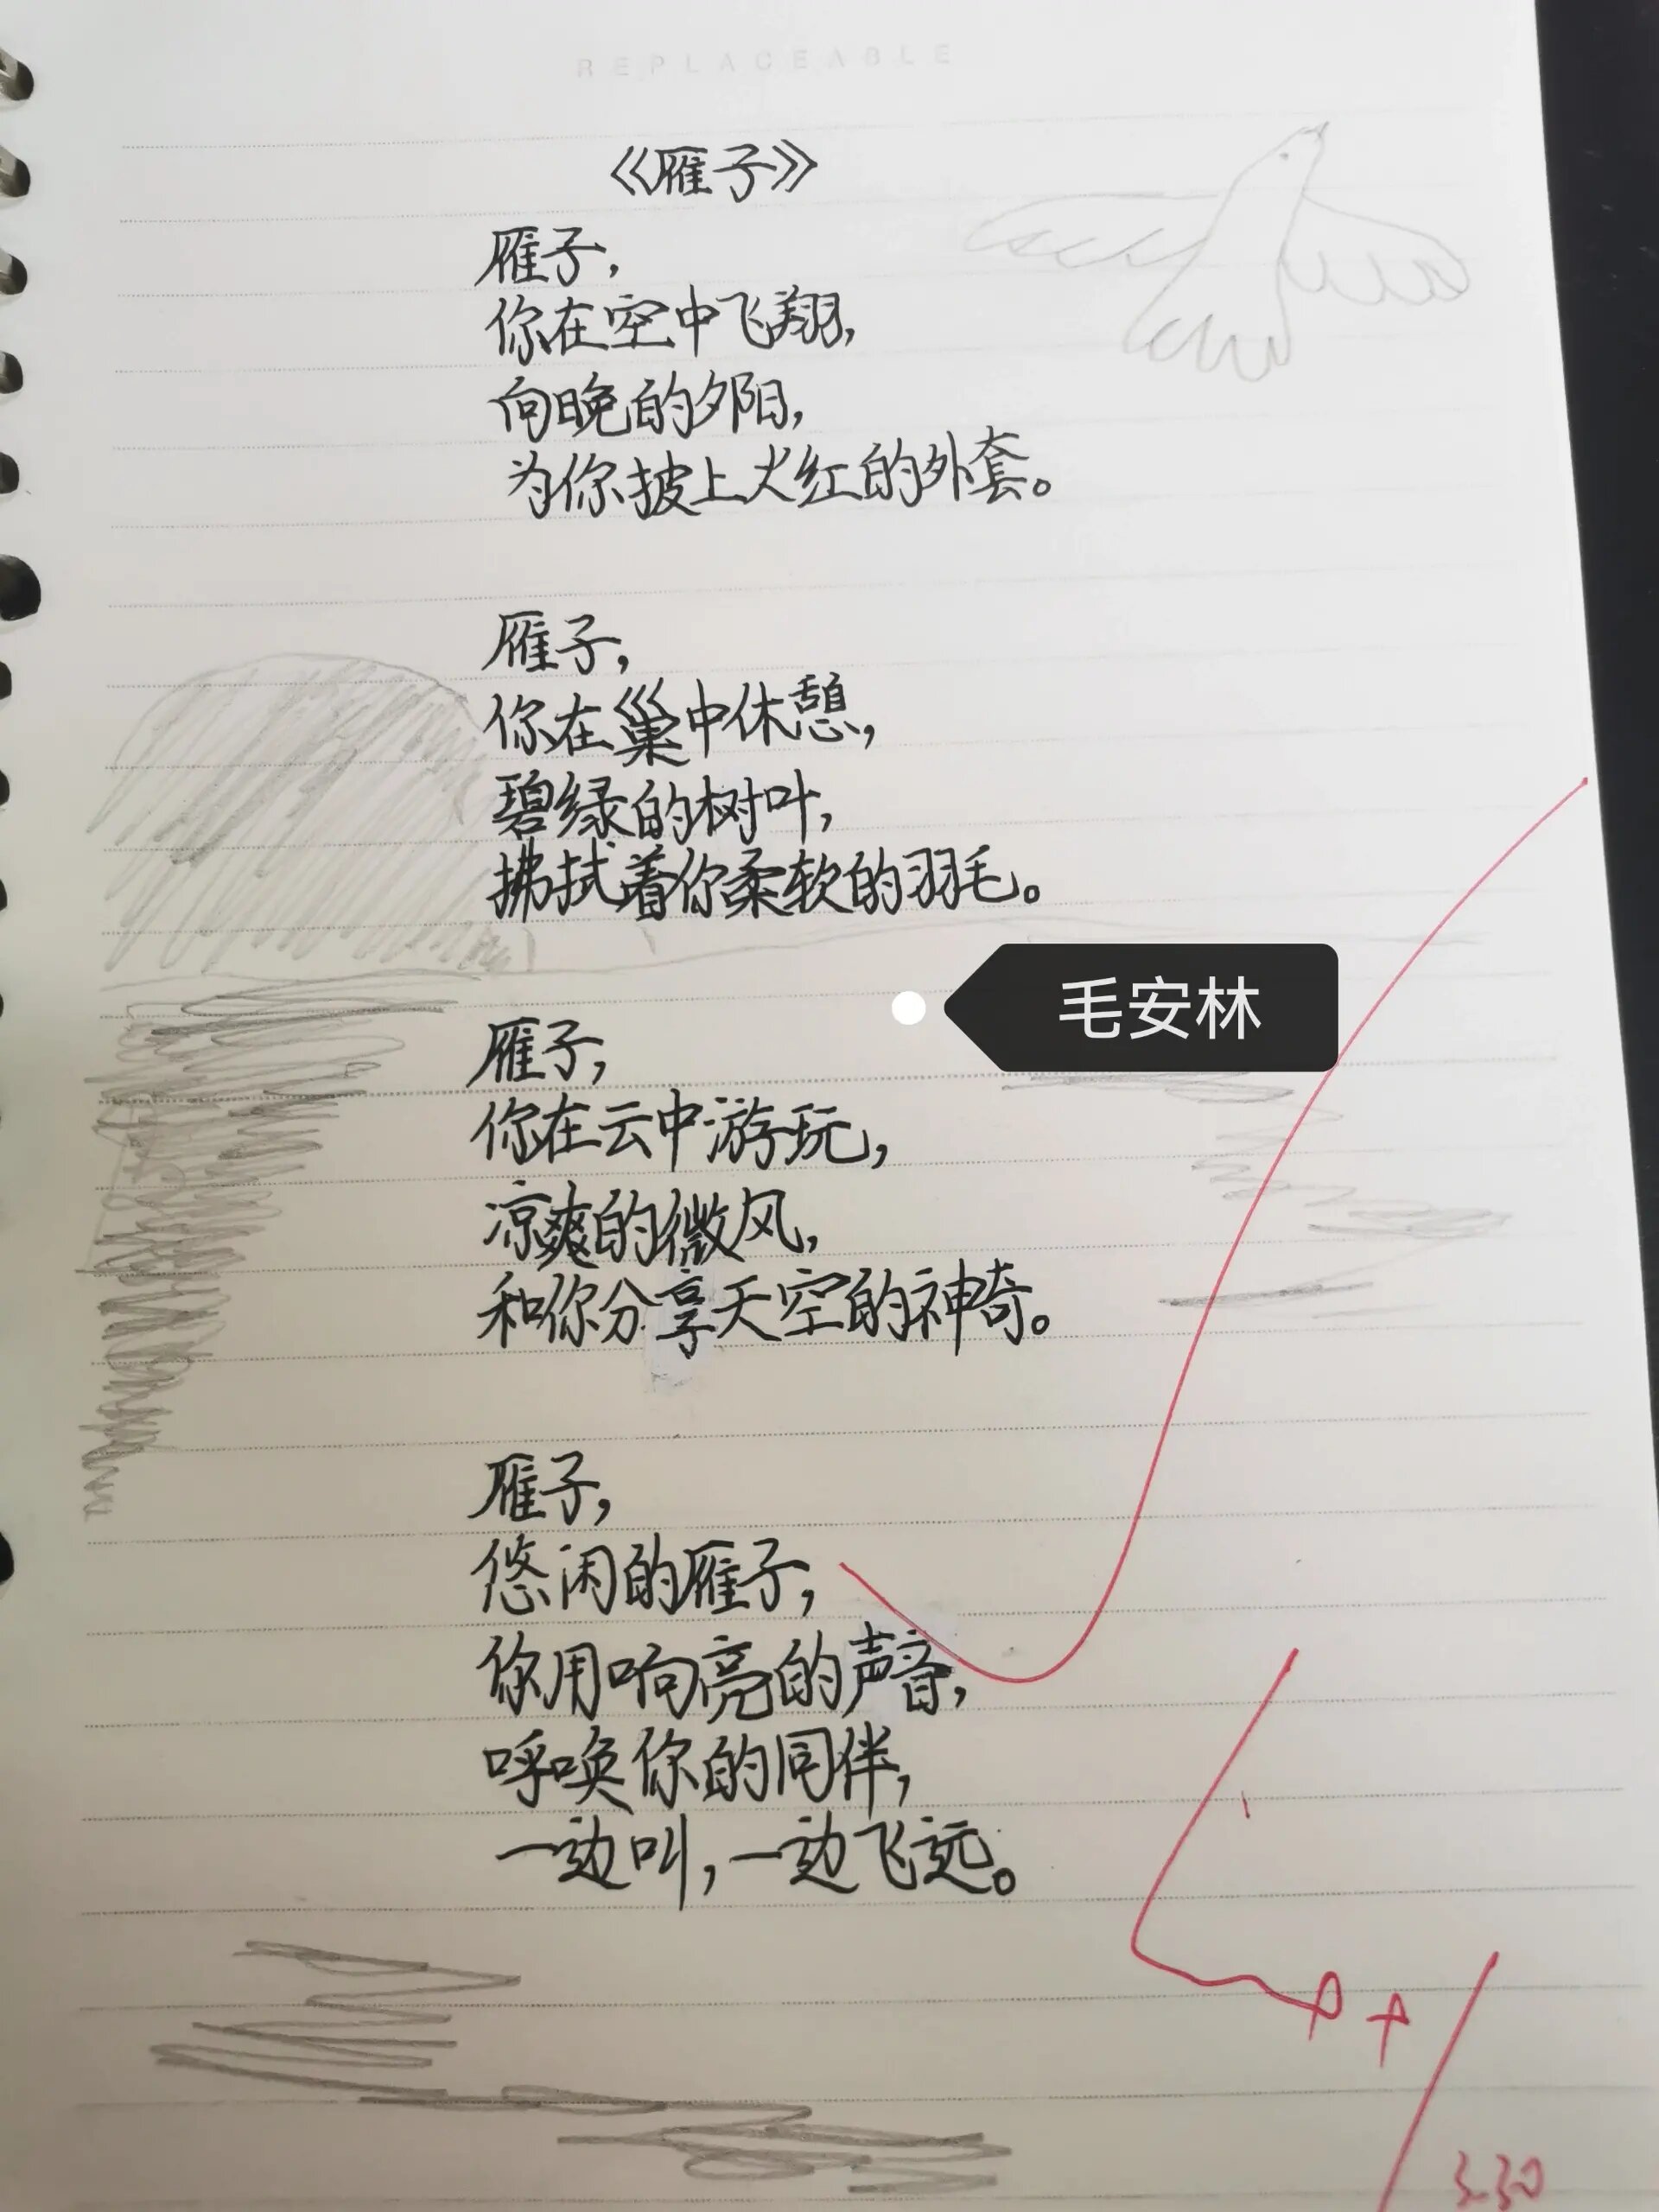 REPLACEABLE
《雁子》
雁子，
你在空中飞翔，
向晚的夕阳，
为你披上火红的外套。
雁子，
你在巢中休憩，
碧绿的树叶，
拂拭着你柔软的羽毛。
毛安林
雁子，
你在云中游玩，
凉爽的微风，
和你分享天空的神奇。
雁子，
悠闲的雁子，
你用响亮的声音，
呼唤你的同伴，
一边叫，一边飞远。
3.30